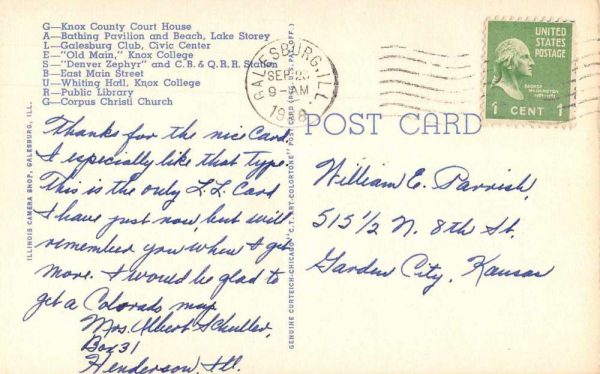 G—Knox County Court House
A—Bathing Pavilion and Beach, Lake Storey
L—Galesburg Club, Civic Center
E—"Old Main," Knox College
S—"Denver Zephyr" and C.B.& Q.R.R. Station
B—East Main Street
U—Whiting Hall, Knox College
R—Public Library
G—Corpus Christi Church
GALESBURG, ILL.
SEP
9-AM
UNITED STATES
POSTAGE
GEORGE
WASHINGTON
1 CENT 1
POST CARD
Thanks for the nice Card
I especially like that type.
This is the only L.L. Card
I have just now, but will
remember you when I get
more. I would be glad to
get a Colorado map
Mrs. Albert Schuller,
Box 31
Henderson, Ill.
William E. Parrish,
515 1/2 N. 8th St.
Garden City, Kansas
ILLINOIS CAMERA SHOP, GALESBURG, ILL.
GENUINE CURTEICH-CHICAGO "C.T. ART-COLORTONE" POST CARD (REG. U.S. PAT. OFF.)